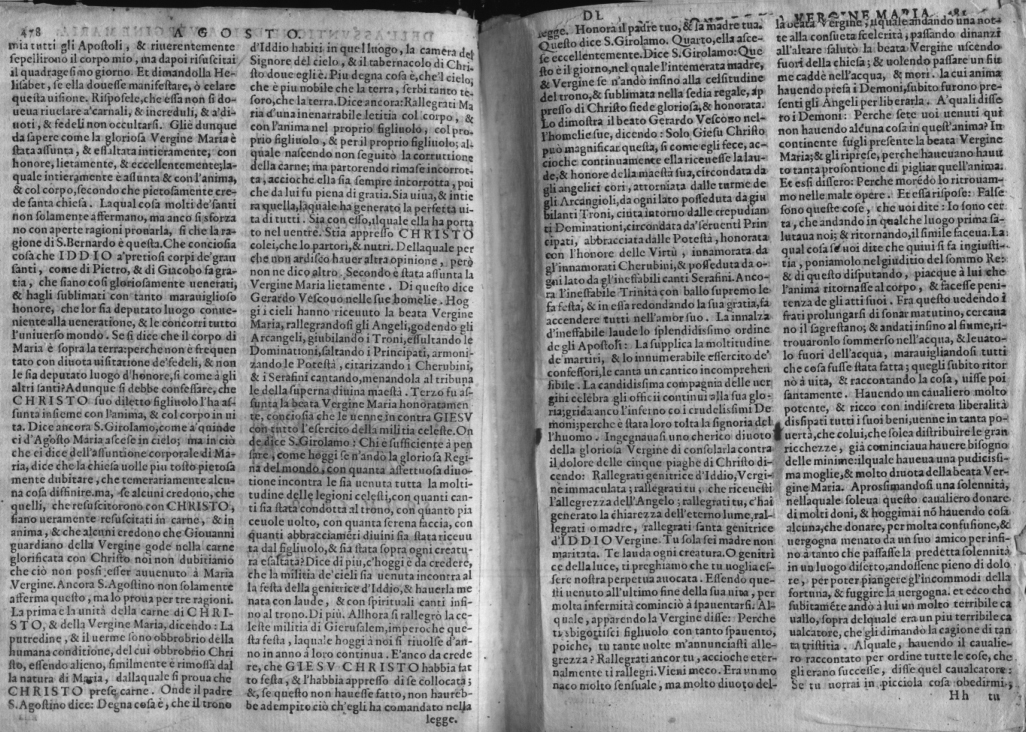 478
AGOSTO.
mia tutti gli Apostoli, & riuerentemente
sepellirono il corpo mio, ma dapoi risuscitai
il quadragesimo giorno. Et dimandolla He-
lisabet, se ella douesse manifestare, ò celare
questa uisione. Rispose le, che essa non si do-
ueua riuelare a'carnali, & increduli, & a'di-
uoti, & fedeli non occultarsi. Gliè dunque
da sapere come la gloriosa Vergine Maria è
stata assunta, & essaltata intieramente; con
honore, lietamente, & eccellentemente; la-
quale intieramente è assunta & con l'anima,
& col corpo, secondo che pietosamente cre-
de santa chiesa. La qual cosa molti de'santi
non solamente affermano, ma anco si sforza
no con aperte ragioni pronarla, si che la ra-
gione di S. Bernardo è questa. Che conciosia
cosa che IDDIO a'pretiosi corpi de'gran
santi, come di Pietro, & di Giacobo fa gra-
tia, che siano così gloriosamente uenerati,
& hagli sublimati con tanto marauiglioso
honore, che lor sia deputato luogo conue-
neniente alla ueneratione, & le concorri tutto
l'uniuerso mondo. Se si dice che il corpo di
Maria è sopra la terra: perche non è frequen
tato con diuota uisitatione de'fedeli, & non
le sia deputato luogo d'honore, si come à gli
altri santi? Adunque si debbe confessare, che
CHRISTO suo diletto figliuolo l'ha as-
sunta insieme con l'anima, & col corpo in ui
ta. Dice ancora S. Girolamo, come a'quinde
ci d'Agosto Maria ascese in cielo; ma in ciò
che ci dice dell'assuntione corporale di Ma-
ria, dice che la chiesa uolle piu tosto pietosa
mente dubitare, che temerariamente alcu-
na cosa diffinire. ma, se alcuni credono, che
quelli, che resuscitorono con CHRISTO,
siano ueramente resuscitati in carne, & in
anima, & che alcuni credono che Giouanni
guardiano della Vergine gode nella carne
glorificata con Christo noi non dubitiamo
che ciò non possi esser auuenuto à Maria
Vergine. Ancora S. Agostino non solamente
afferma questo, ma lo proua per tre ragioni.
La prima è la unità della carne di CHRI-
STO, & della Vergine Maria, dicendo: La
putredine, & il uerme sono obbrobrio della
humana conditione, del cui obbrobrio Chri
sto, essendo alieno, similmente è rimossa dal
la natura di Maria, dallaquale si proua che
CHRISTO prese carne. Onde il padre
S. Agostino dice: Degna cosa è, che il trono
d'Iddio habiti in quel luogo, la camera del
Signore del cielo, & il tabernacolo di Chri-
sto doue egli è. Piu degna cosa è, che'l cielo,
che è piu nobile che la terra, serbi tanto te-
soro, che la terra. Dice ancora: Rallegrati Ma
ria d'una inenarrabile letitia col corpo, &
con l'anima nel proprio figliuolo, col pro-
prio figliuolo, & per il proprio figliuolo; al-
quale nascendo non seguitò la corruttione
della carne; ma partorendo rimase incorrot-
ta, accioche ella sia sempre incorrotta, poi
che da lui fu piena di gratia. Sia uiua, & intie
ra quella, laquale ha generato la perfetta ui-
ta di tutti. Sia con esso, ilquale ella ha porta
to nel uentre. Stia appresso CHRISTO
colei, che lo partorì, & nutrì. Dellaquale per
che non ardisco hauer altra opinione, però
non ne dico altro. Secondo è stata assunta la
Vergine Maria lietamente. Di questo dice
Gerardo Vescouo nelle sue homelie. Hog
gi i cieli hanno riceuuto la beata Vergine
Maria, rallegrandosi gli Angeli, godendo gli
Arcangeli, giubilando i Troni, essultando le
Dominationi, saltando i Principati, armoni-
zando le Potestà, citarizando i Cherubini,
& i Serafini cantando, menandola al tribuna
le della superna diuina maestà. Terzo fu as-
sunta la beata Vergine Maria honoratamen-
te, conciosia che le uenne in contra GIESV
con tutto l'essercito della militia celeste. On
de dice S. Girolamo: Chi è sufficiente à pen
sare, come hoggi se n'andò la gloriosa Regi
na del mondo, con quanta affettuosa diuo-
tione incontra le sia uenuta tutta la molti-
tudine delle legioni celesti, con quanti can-
ti sia stata condotta al trono, con quanto pia
ceuole uolto, con quanta serena faccia, con
quanti abbracciamēti diuini sia stata riceuu
ta dal figliuolo, & sia stata sopra ogni creatu-
ra essaltata? Dice di piu, c'hoggi è da credere,
che la militia de'cieli sia uenuta incontra al
la festa della genitrice d'Iddio, & hauerla me
nata con laude, & con spirituali canti insi-
no al trono. Di più. Allhora si rallegrò la ce-
leste militia di Gierusalem, imperoche que-
sta festa, laquale hoggi à noi si riuolse d'an-
no in anno à loro continua. E'anco da crede
re, che GIESV CHRISTO habbia fat
to festa, & l'habbia appresso di se collocata;
&, se questo non hauesse fatto, non haureb-
be adempito ciò ch'egli ha comandato nella
legge.
DI VERGINE MARIA.
legge. Honora il padre tuo, & la madre tua.
Questo dice S. Girolamo. Quarto, ella asce-
se eccellentemente. Dice S. Girolamo: Que
sto è il giorno, nel quale l'intemerata madre,
& Vergine se n'andò insino alla celsitudine
del trono, & sublimata nella sedia regale, ap
presso di Christo siede gloriosa, & honorata.
Lo dimostra il beato Gerardo Vescouo nel-
l'homelie sue, dicendo: Solo Giesu Christo
può magnificar questa, si come egli fece, ac-
cioche continuamente ella riceuesse la lau-
de, & honore della maestà sua, circondata da
gli angelici cori, attorniata dalle turme de
gli Arcangioli, da ogni lato posseduta da giu
bilanti Troni, cinta intorno dalle crepudian
ti Dominationi, circondata da'seruenti Prin
cipati, abbracciata dalle Potestà, honorata
con l'honore delle Virtù, innamorata da
gl'innamorati Cherubini, & posseduta da o-
gni lato da gl'inessabili canti Serafini. Anco-
ra l'inessabile Trinità con ballo supremo le
fa festa, & in essa redondando la sua gratia, fa
accendere tutti nell'amor suo. La innalza
d'ineffabile laude lo splendidissimo ordine
de gli Apostoli: La supplica la moltitudine
de martiri, & lo innumerabile essercito de'
confessori, le canta un cantico incomprehen
sibile. La candidissima compagnia delle uer
gini celebra gli officii continui alla sua glo-
ria; grida anco l'inferno co i crudelissimi De
moni; perche è stata loro tolta la signoria del
l'huomo. Ingegnauasi uno cherico diuoto
della gloriosa Vergine di consolarla contra
il dolore delle cinque piaghe di Christo di-
cendo: Rallegrati genitrice d'Iddio, Vergi-
ne immaculata; rallegrati tu, che riceuesti
l'allegrezza dell'Angelo; rallegrati tu, c'hai
generato la chiarezza dell'eterno lume, ral-
legrati o madre, rallegrati santa genitrice
d'IDDIO Vergine. Tu sola sei madre non
maritata. Te lauda ogni creatura. O genitri
ce della luce, ti preghiamo che tu uoglia es-
sere nostra perpetua auocata. Essendo que-
sti uenuto all'ultimo fine della sua uita, per
molta infermità cominciò à spauentarsi. Al-
quale, apparendo la Vergine disse: Perche
ti sbigottisci figliuolo con tanto spauento,
poiche, tu tante uolte m'annunciasti alle-
grezza? Rallegrati ancor tu, accioche eter-
nalmente ti rallegri. Vieni meco. Era un mo
naco molto sensuale, ma molto diuoto del-
la beata Vergine, ilquale andando una not-
te alla consueta scelerità, passando dinanzi
all'altare salutò la beata Vergine uscendo
fuori della chiesa; & uolendo passare un fiu
me caddè nell'acqua, & morì. la cui anima
hauendo presa i Demoni, subito furono pre-
senti gli Angeli per liberarla. A'quali disse
ro i Demoni: Perche sete uoi uenuti qui
non hauendo alcuna cosa in quest'anima? In
continente fugli presente la beata Vergine
Maria; & gli riprese, perche haueuano hauu
to tanta prosontione di pigliar quell'anima.
Et essi dissero: Perche morēdo lo ritrouam-
mo nelle male opere. Et essa rispose: False
sono queste cose, che uoi dite: Io sono cer
ta, che andando in qualche luogo prima sa-
lutaua noi; & ritornando, il simile faceua. La
qual cosa se uoi dite che quiui si fa ingiusti-
tia, poniamolo nel giuditio del sommo Re:
& di questo disputando, piacque à lui che
l'anima ritornasse al corpo, & facesse peni-
tenza de gli atti suoi. Fra questo uedendo i
frati prolungarsi di sonar matutino, cercaua
no il sagrestano; & andati insino al fiume, ri-
trouaronlo sommerso nell'acqua, & leuato-
lo fuori dell'acqua, marauigliandosi tutti
che cosa fusse stata fatta; quegli subito ritor
nò à uita, & raccontando la cosa, uisse poi
santamente. Hauendo un caualiero molto
potente, & ricco con indiscreta liberalità
dissipati tutti i suoi beni, uenne in tanta po-
uertà, che colui, che solea distribuire le gran
ricchezze, già cominciaua hauere bisogno
delle minime: ilquale haueua una pudicissi-
ma moglie, & molto diuota della beata Ver-
gine Maria. Aprossimandosi una solennità,
nellaquale soleua questo caualiero donare
di molti doni, & hoggimai nō hauendo cosa
alcuna, che donare, per molta confusione, &
uergogna menato da un suo amico per insi-
no a tanto che passasse la predetta solennità
in un luogo diserto, andossene pieno di dolo
re, per poter piangere gl'incommodi della
fortuna, & fuggire la uergogna. et ecco che
subitamēte andò à lui un molto terribile ca
uallo, sopra delquale era un piu terribile ca
ualcatore, che gli dimandò la cagione di tan
ta tristitia. Alquale, hauendo il caualie-
ro raccontato per ordine tutte le cose, che
gli erano successe, disse quel caualcatore
Se tu uorrai in picciola cosa obedirmi,
Hh tu